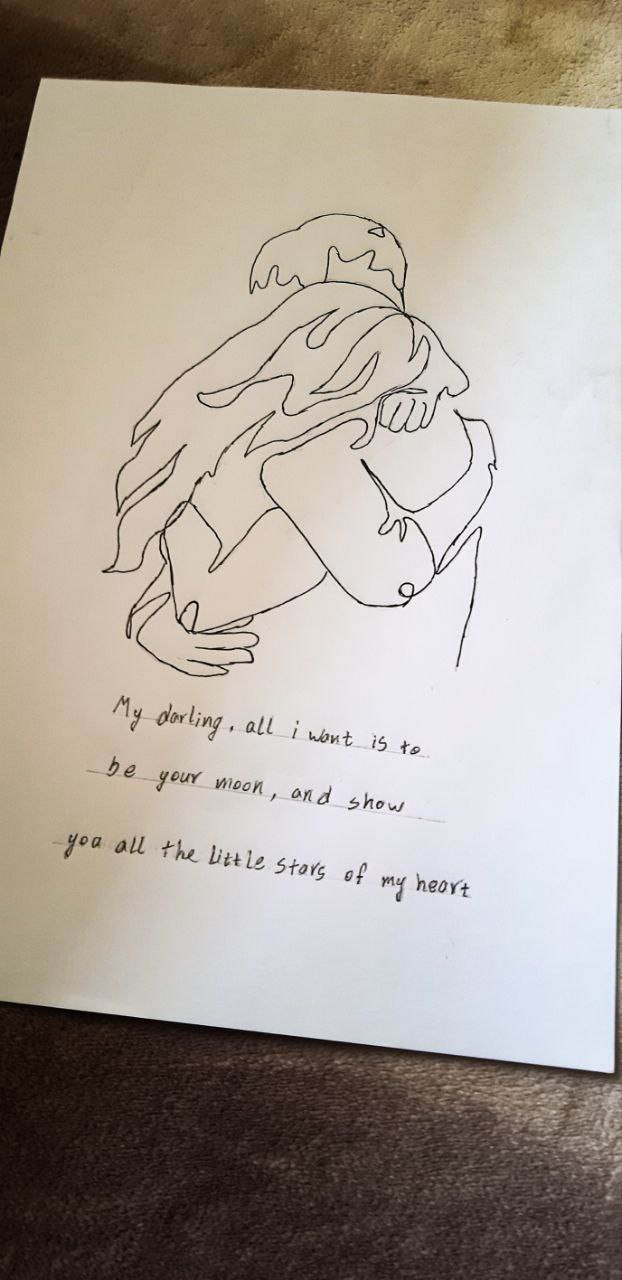 My darling, all i want is to
be your moon, and show
you all the little stars of my heart